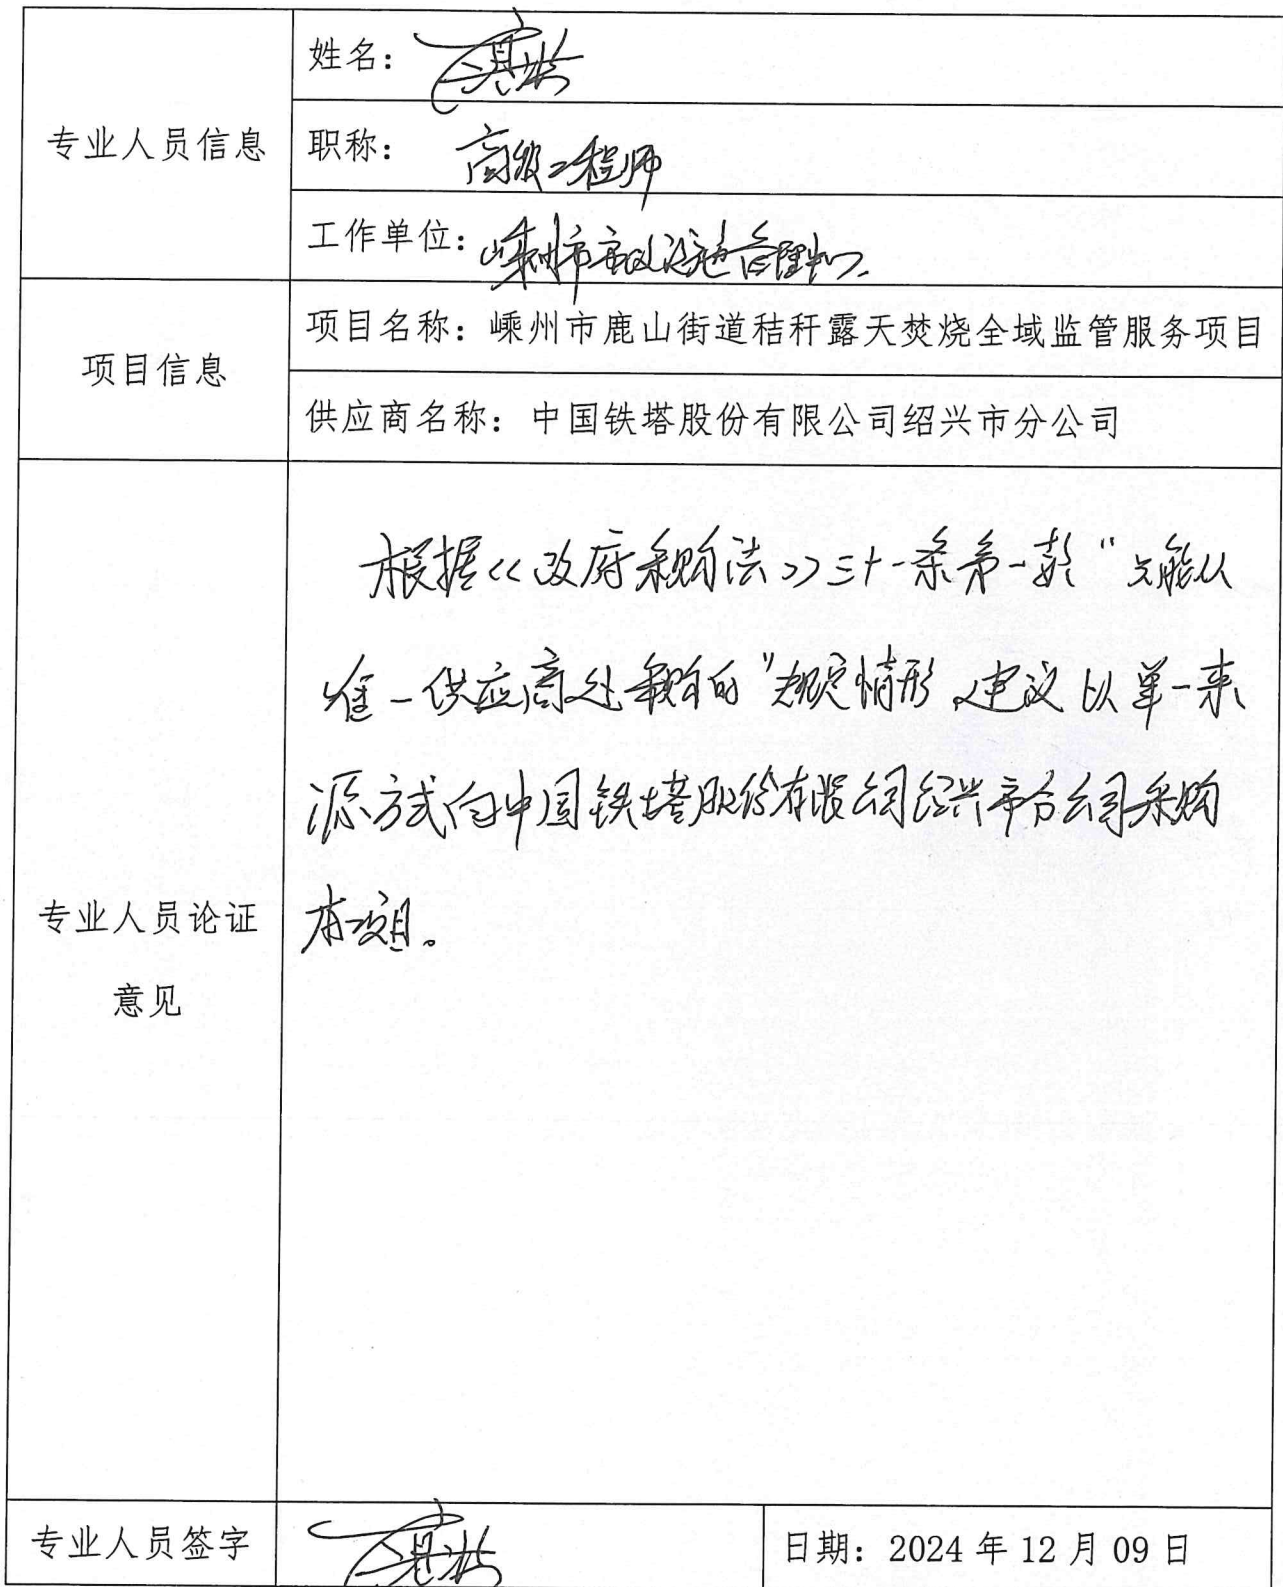 专业人员信息
姓名：
职称： 高级工程师
工作单位：嵊州市市政设施管理中心
项目信息
项目名称：嵊州市鹿山街道秸秆露天焚烧全域监管服务项目
供应商名称：中国铁塔股份有限公司绍兴市分公司
专业人员论证
意见
根据《政府采购法》三十一条第一款“只能从
唯一供应商处采购的”规定情形，建议以单一来
源方式向中国铁塔股份有限公司绍兴市分公司采购
本项目。
专业人员签字
日期：2024年12月09日